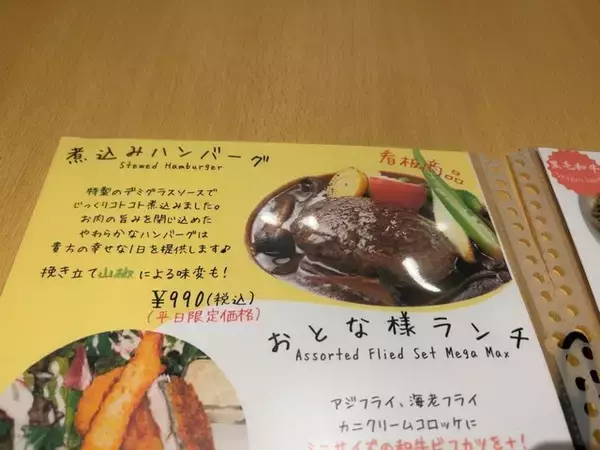 煮込みハンバーグ
Stewed Hamburger
看板商品
特製のデミグラスソースで
じっくりコトコト煮込みました。
お肉の旨みを閉じ込めた
やわらかなハンバーグは
貴方の幸せな1日を提供します♪
挽き立て山椒による味変も!
¥990(税込)
(平日限定価格)
おとな様ランチ
Assorted Flied Set Mega Max
アジフライ、海老フライ
カニクリームコロッケに
ミニサイズの和牛ビフカツを+!
黒毛和牛